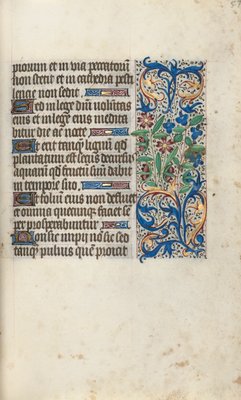 piorum et in via peccatorum
non stetit et in cathedra pesti
lencie non sedit.
Sed in lege dñi voluntas
eius et in lege eius medita
bitur die ac nocte
Et erit tanqȝ lignum qd̃
plantatum est secus decursus
aquarũ qd̃ fructũ suũ dabit
in tempore suo.
Et foliũ eius non defluet
et omnia quecunqȝ faciet sẽ
per prosperabuntur
Non sic impij nõ sic sed
tanqȝ puluis quẽ proicit